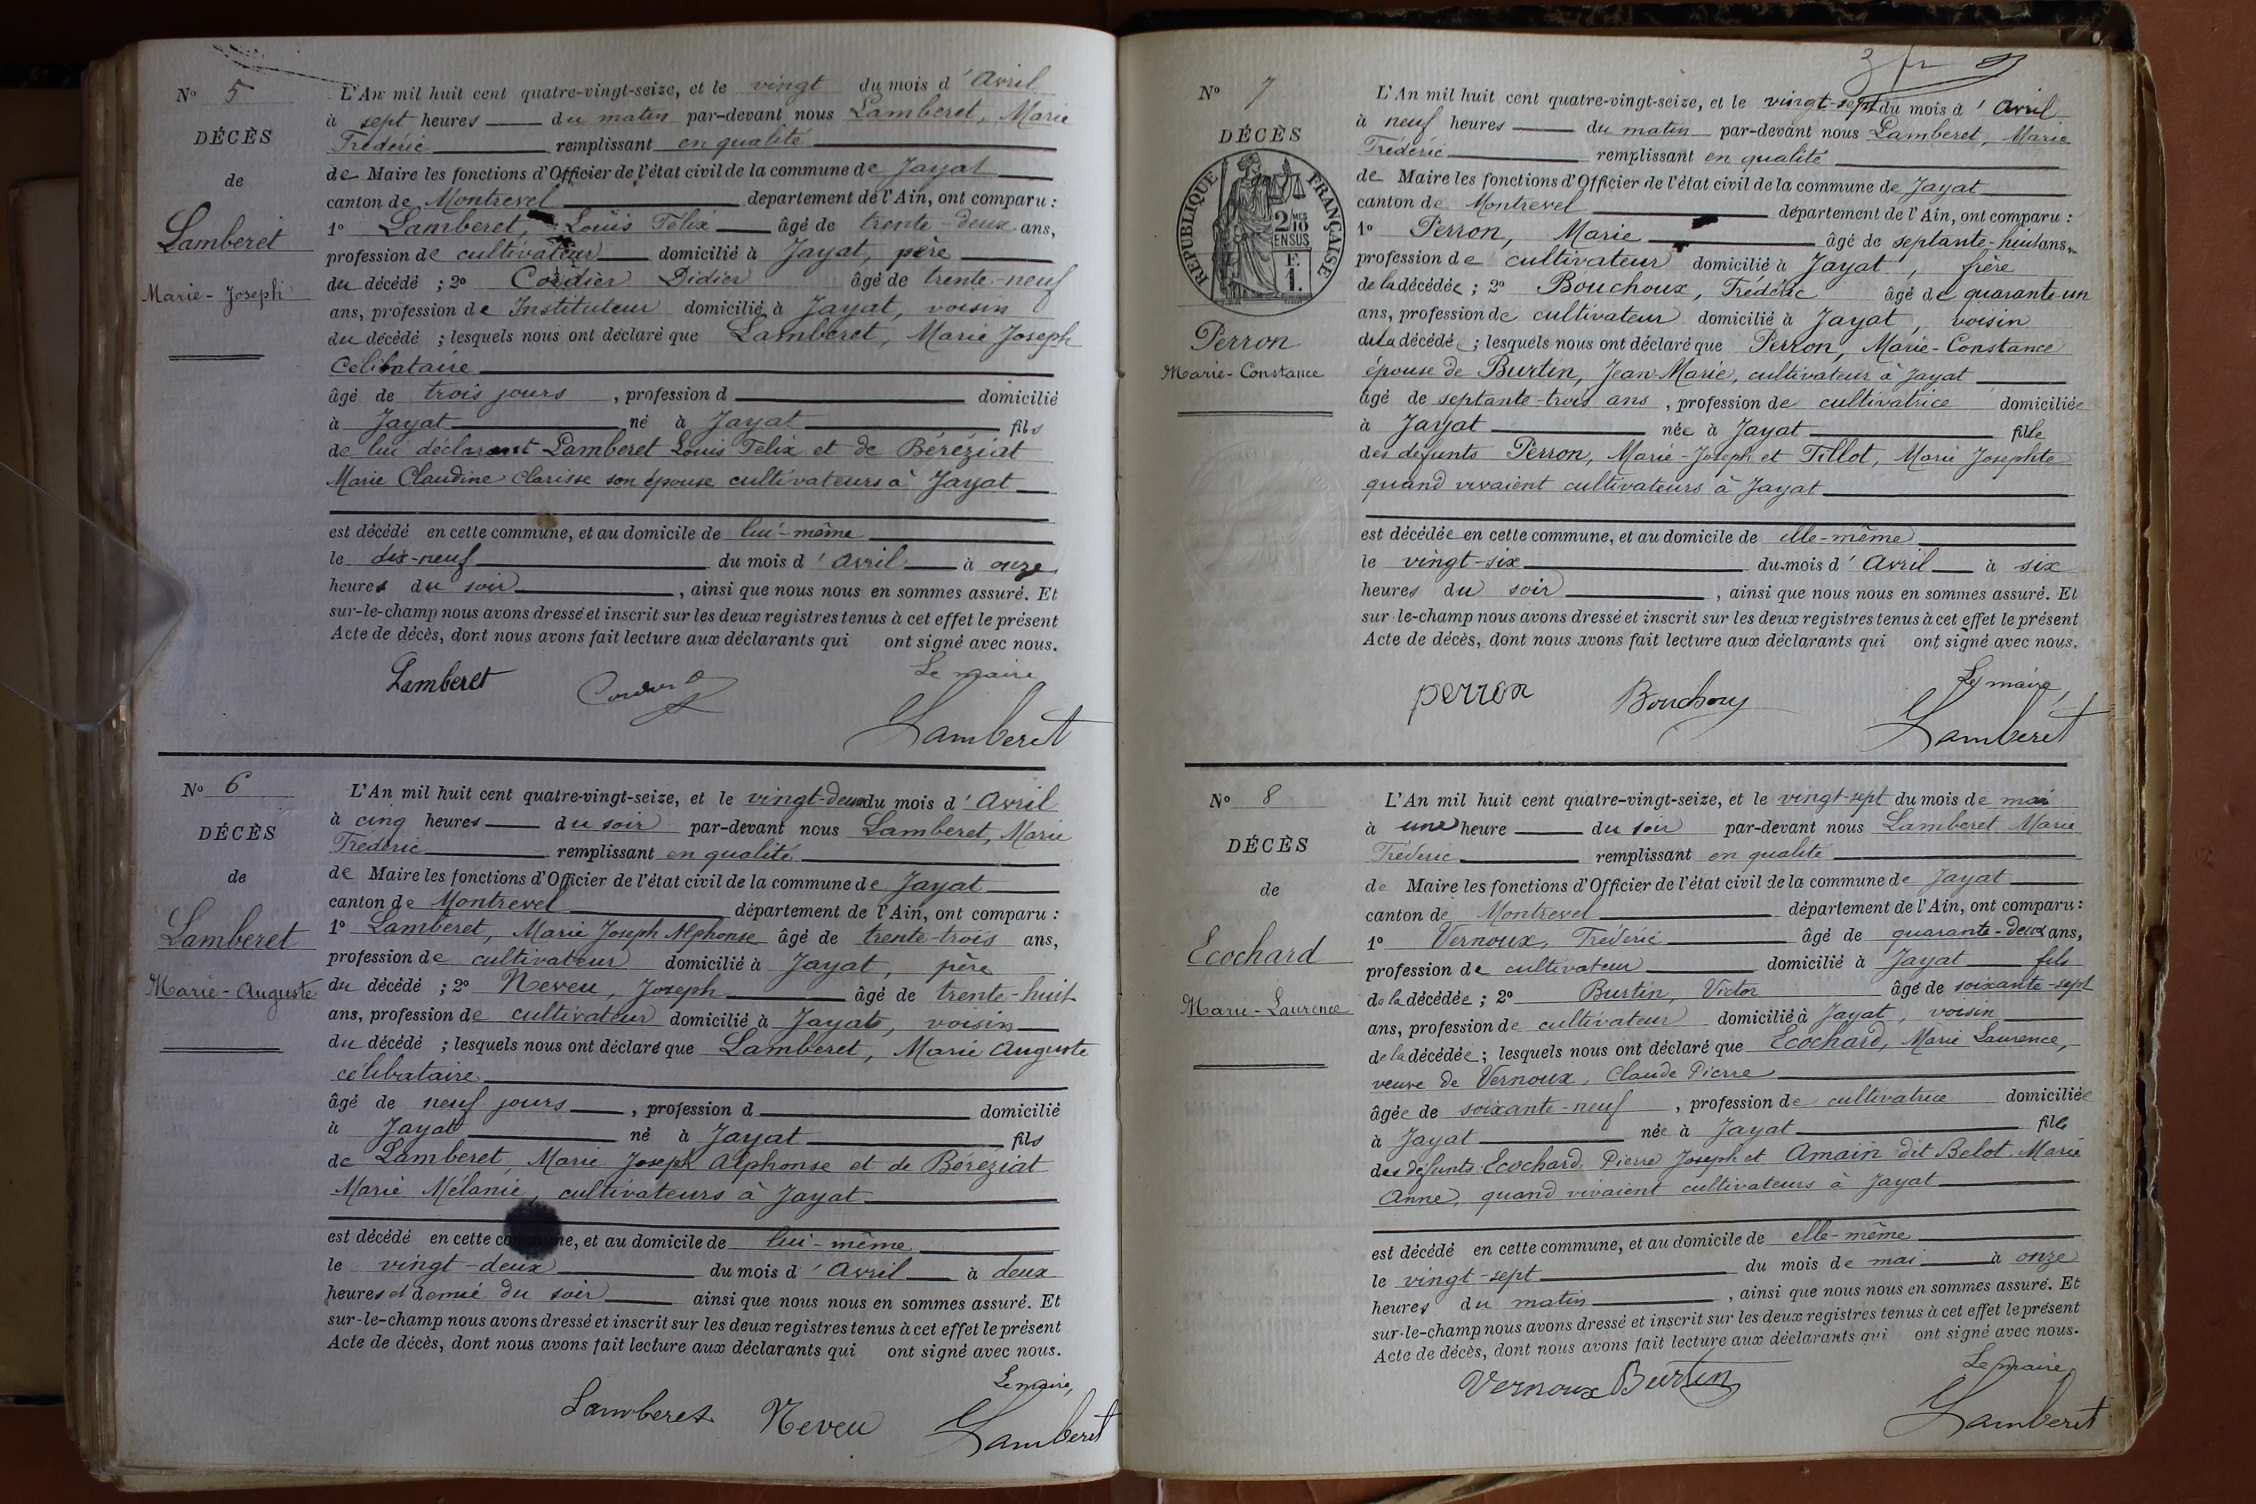 N° 5
DÉCÈS
de
Lamberet
Marie-Joseph
L'An mil huit cent quatre-vingt-seize, et le vingt du mois d'Avril
à sept heures du matin par-devant nous Lamberet, Marie
Frédéric remplissant en qualité
de Maire les fonctions d'Officier de l'état civil de la commune de Jayat
canton de Montrevel département de l'Ain, ont comparu :
1° Lamberet, Louis Félix âgé de trente-deux ans,
profession de cultivateur domicilié à Jayat, père
du décédé ; 2° Cordier Didier âgé de trente-neuf
ans, profession de Instituteur domicilié à Jayat, voisin
du décédé ; lesquels nous ont déclaré que Lamberet, Marie Joseph
Célibataire
âgé de trois jours , profession d domicilié
à Jayat né à Jayat fils
de lui déclarant Lamberet Louis Félix et de Béréziat
Marie Claudine Clarisse son épouse cultivateurs à Jayat
est décédé en cette commune, et au domicile de lui-même
le dix-neuf du mois d'Avril à onze
heures du soir , ainsi que nous nous en sommes assuré. Et
sur-le-champ nous avons dressé et inscrit sur les deux registres tenus à cet effet le présent
Acte de décès, dont nous avons fait lecture aux déclarants qui ont signé avec nous.
Le maire
Lamberet
Lamberet
N° 6
DÉCÈS
de
Lamberet
Marie-Auguste
L'An mil huit cent quatre-vingt-seize, et le vingt-deux du mois d'Avril
à cinq heures du soir par-devant nous Lamberet, Marie
Frédéric remplissant en qualité
de Maire les fonctions d'Officier de l'état civil de la commune de Jayat
canton de Montrevel département de l'Ain, ont comparu :
1° Lamberet, Marie Joseph Alphonse âgé de trente-trois ans,
profession de cultivateur domicilié à Jayat, père
du décédé ; 2° Neveu, Joseph âgé de trente-huit
ans, profession de cultivateur domicilié à Jayat, voisin
du décédé ; lesquels nous ont déclaré que Lamberet, Marie Auguste
célibataire
âgé de neuf jours , profession d domicilié
à Jayat né à Jayat fils
de Lamberet, Marie Joseph Alphonse et de Béréziat
Marie Mélanie, cultivateurs à Jayat
est décédé en cette commune, et au domicile de lui-même
le vingt-deux du mois d'Avril à deux
heures et demie du soir ainsi que nous nous en sommes assuré. Et
sur-le-champ nous avons dressé et inscrit sur les deux registres tenus à cet effet le présent
Acte de décès, dont nous avons fait lecture aux déclarants qui ont signé avec nous.
Le maire,
Lamberet Neveu Lamberet
N° 7
DÉCÈS
RÉPUBLIQUE FRANÇAISE
2/10
EN SUS
F.
1.
Perron
Marie-Constance
L'An mil huit cent quatre-vingt-seize, et le vingt-sept du mois d'Avril
à neuf heures du matin par-devant nous Lamberet, Marie
Frédéric remplissant en qualité
de Maire les fonctions d'Officier de l'état civil de la commune de Jayat
canton de Montrevel département de l'Ain, ont comparu :
1° Perron, Marie âgé de septante-huit ans,
profession de cultivateur domicilié à Jayat, frère
de la décédée ; 2° Bouchoux, Frédéric âgé de quarante-un
ans, profession de cultivateur domicilié à Jayat, voisin
de la décédée ; lesquels nous ont déclaré que Perron, Marie-Constance
épouse de Burtin, Jean-Marie, cultivateur à Jayat
âgé de septante-trois ans , profession de cultivatrice domiciliée
à Jayat née à Jayat fille
des défunts Perron, Marie-Joseph et Tillot, Marie Josephte
quand vivaient cultivateurs à Jayat
est décédée en cette commune, et au domicile de elle-même
le vingt-six du mois d'Avril à six
heures du soir , ainsi que nous nous en sommes assuré. Et
sur-le-champ nous avons dressé et inscrit sur les deux registres tenus à cet effet le présent
Acte de décès, dont nous avons fait lecture aux déclarants qui ont signé avec nous.
Le maire,
perron Bouchoux Lamberet
N° 8
DÉCÈS
de
Ecochard
Marie-Laurence
L'An mil huit cent quatre-vingt-seize, et le vingt-sept du mois de mai
à une heure du soir par-devant nous Lamberet Marie
Frédéric remplissant en qualité
de Maire les fonctions d'Officier de l'état civil de la commune de Jayat
canton de Montrevel département de l'Ain, ont comparu :
1° Vernoux, Frédéric âgé de quarante-deux ans,
profession de cultivateur domicilié à Jayat fils
de la décédée ; 2° Burtin, Victor âgé de soixante-sept
ans, profession de cultivateur domicilié à Jayat, voisin
de la décédée ; lesquels nous ont déclaré que Ecochard, Marie Laurence,
veuve de Vernoux, Claude Pierre
âgée de soixante-neuf , profession de cultivatrice domiciliée
à Jayat née à Jayat fille
des défunts Ecochard Pierre Joseph et Amain dit Belot Marie
Anne, quand vivaient cultivateurs à Jayat
est décédé en cette commune, et au domicile de elle-même
le vingt-sept du mois de mai à onze
heures du matin , ainsi que nous nous en sommes assuré. Et
sur-le-champ nous avons dressé et inscrit sur les deux registres tenus à cet effet le présent
Acte de décès, dont nous avons fait lecture aux déclarants qui ont signé avec nous.
Le maire,
Vernoux Burtin
Lamberet